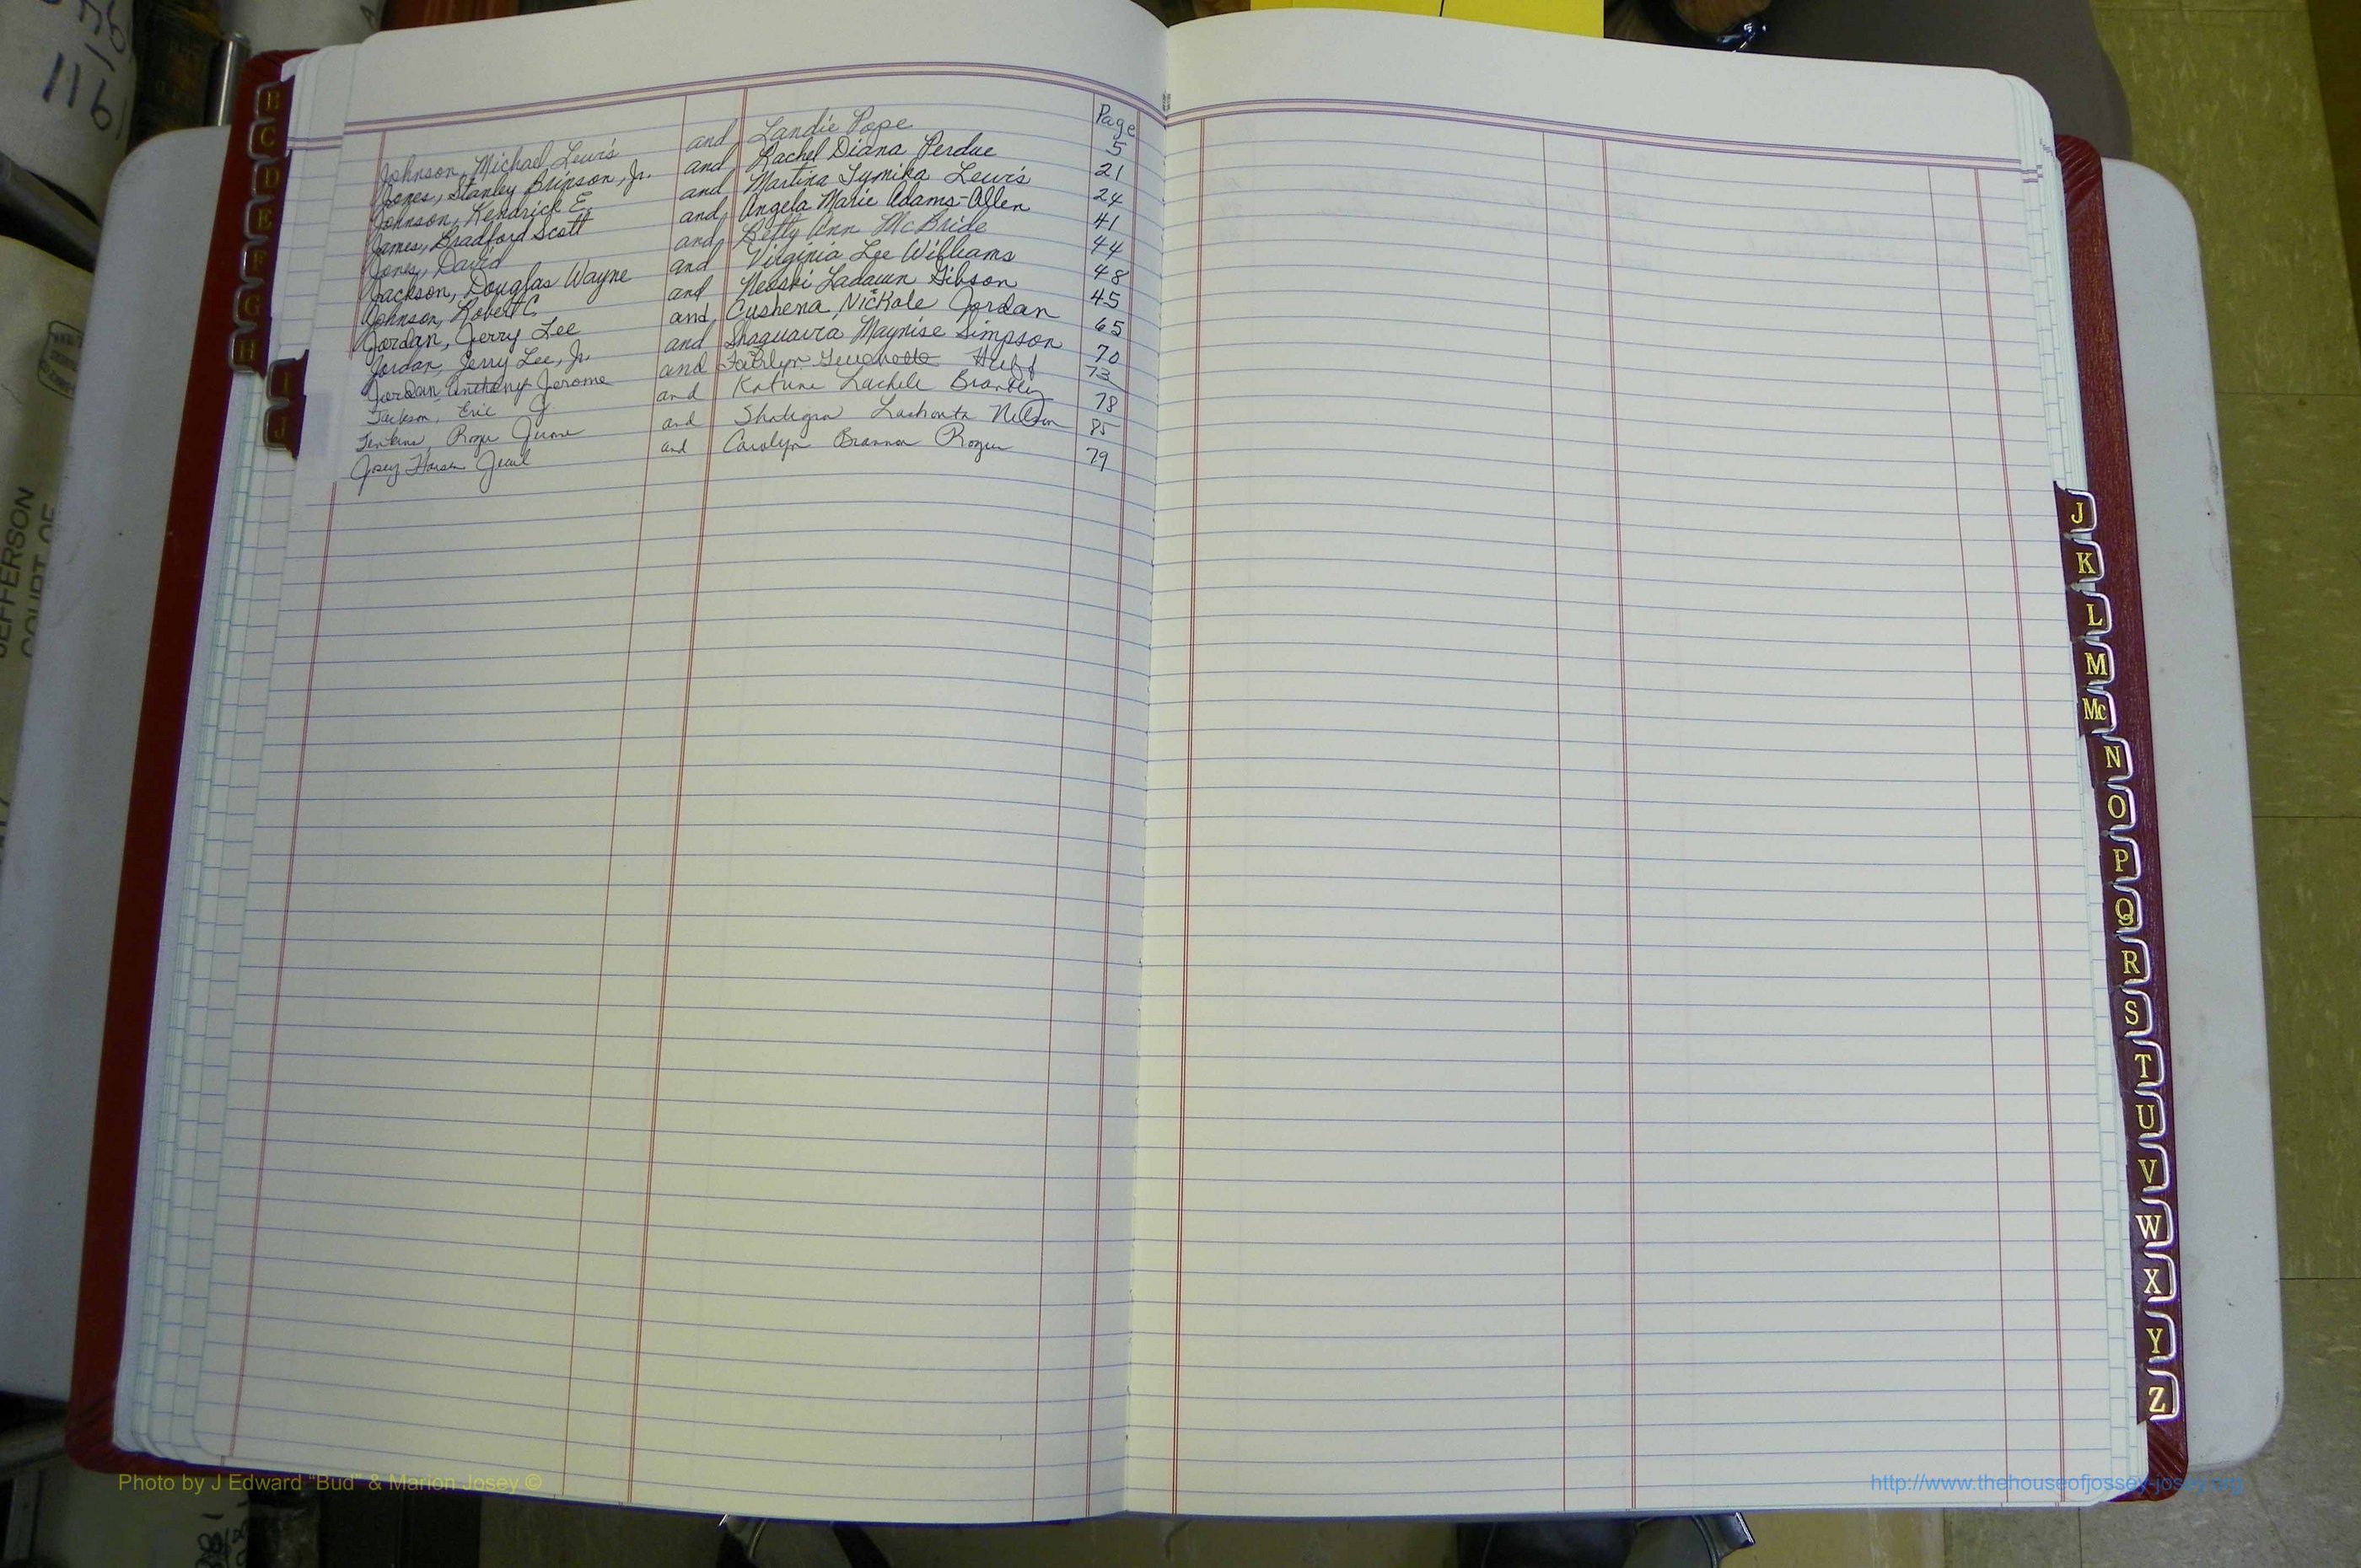 Page
Johnson, Michael Lewis and Landie Pope 5
Jones, Stanley Brinson, Jr. and Rachel Diana Perdue 21
Johnson, Kendrick E. and Martina Tymika Lewis 24
James, Bradford Scott and Angela Marie Adams-Allen 41
Jones, David and Betty Ann McBride 44
Jackson, Douglas Wayne and Virginia Lee Williams 48
Johnson, Robert C. and Ladawn Gibson 45
Jordan, Jerry Lee and Cushena Nickole Jordan 65
Jordan, Jerry Lee, Jr. and Shaquavia Maynise Simpson 70
Jordan, Anthony Jerome and Huff 73
Jackson, Eric J. and Lachele Brantley 78
Jenkins, Roger and 85
Josey and Carolyn Brannon 79
B
C
D
E
F
G
H
I
J
J
K
L
M
Mc
N
O
P
Q
R
S
T
U
V
W
X
Y
Z
116
JEFFERSON
COURT OF
Photo by J Edward "Bud" & Marion Josey ©
http://www.thehouseofjossey-josey.org